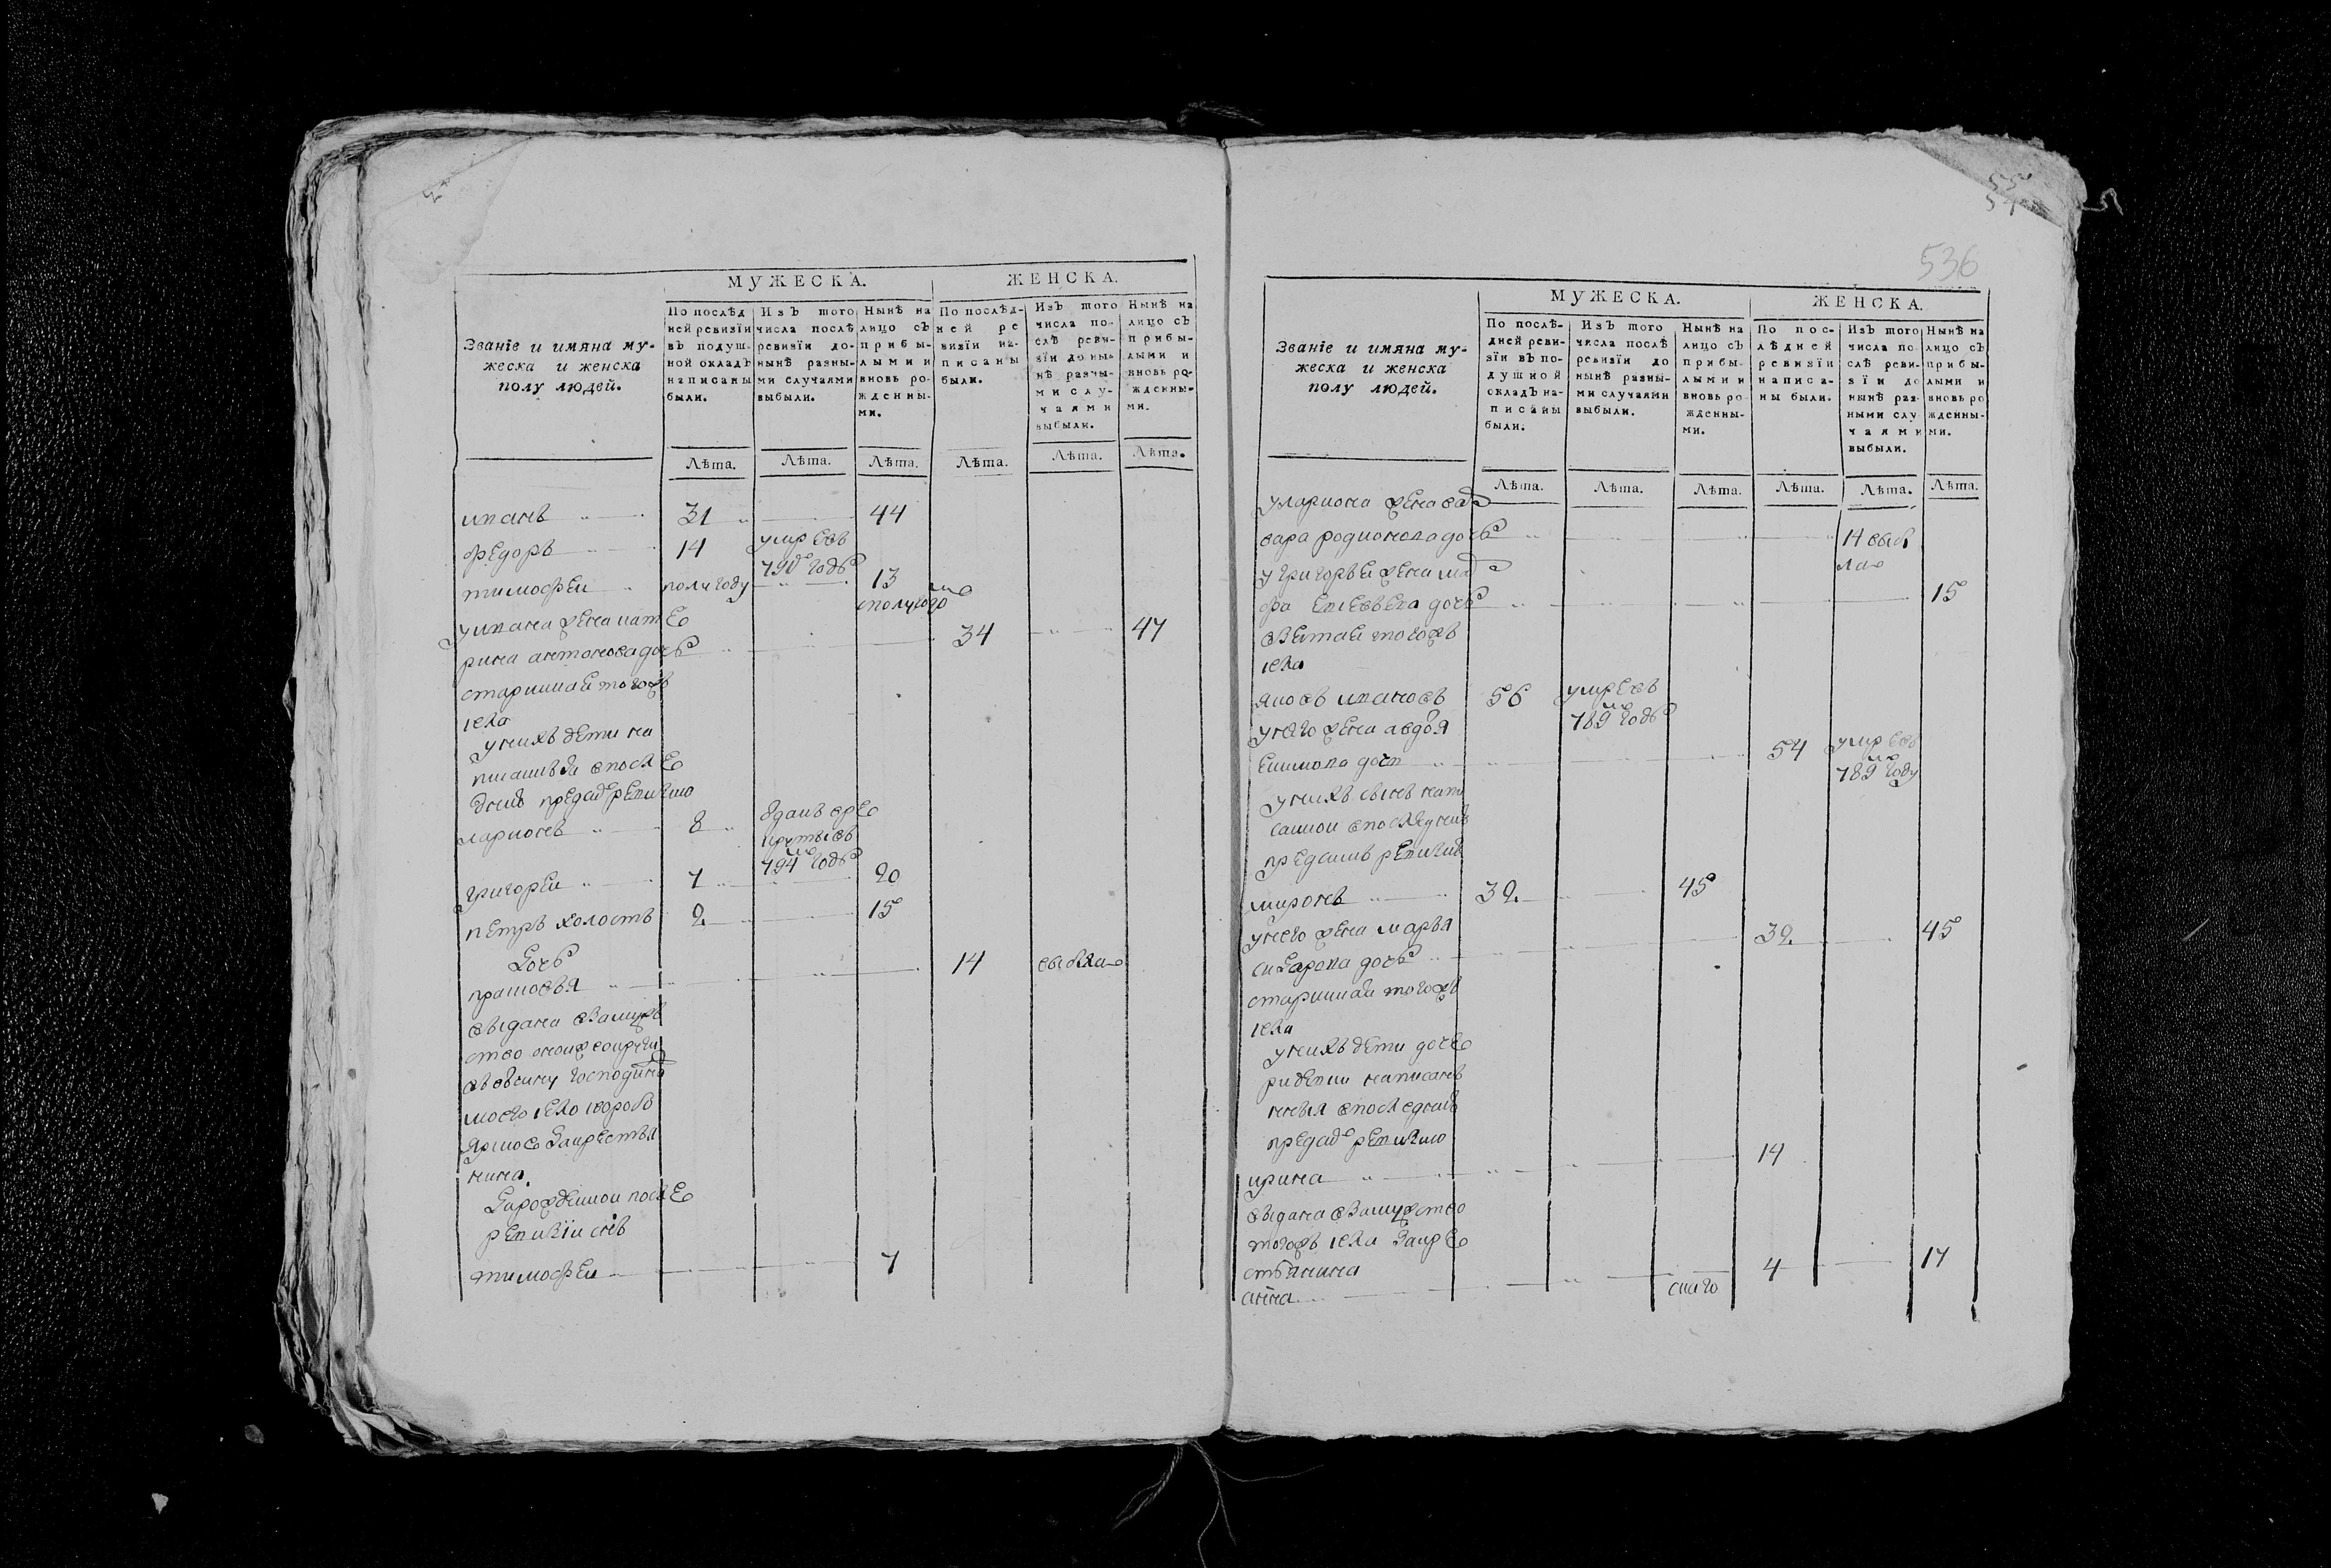 МУЖЕСКА. ЖЕНСКА.
Званіе и имяна му-
жеска и женска
полу людей.
По послѣд
ней ревизїи
въ подуш-
ной окладъ
написаны
были.
Изъ того
числа послѣ
ревизїи до-
нынѣ разны-
ми случаями
выбыли.
Нынѣ на
лицо съ
прибы-
лыми и
вновь ро-
жденны-
ми.
По послѣд-
ней ре
визїи на-
писаны
были.
Изъ того
числа по-
слѣ реви-
зїи до ны-
нѣ разны-
ми слу-
чаями
выбыли.
Нынѣ на
лицо съ
прибы-
лыми и
вновь ро-
жденны-
ми.
Лѣта. Лѣта. Лѣта. Лѣта. Лѣта. Лѣта.
иванъ 31 44
федоръ 14 умре въ
790 годѣ
тимофеи полугоду 13
сполугодо
уивана жена кате 34 47
рина антонова дочь
стариннаи тогожъ
села
унихъ дети на
писанъи впосле
дней пред ревизию
ларионъ 8 зданъ вре
круты въ
794 годѣ
григореи 7 20
петръ холостъ 2 15
дочь
прасковья 14 выбыла
выдана взамуж
ство
господина
моего село
крестья
нина
Зарожденнои после
ревизїи снъ
тимофеи 7
536
МУЖЕСКА. ЖЕНСКА.
Званіе и имяна му-
жеска и женска
полу людей.
По послѣ-
дней реви-
зїи въ по-
душной
окладъ на-
писаны
были.
Изъ того
числа послѣ
ревизїи до
нынѣ разны-
ми случаями
выбыли.
Нынѣ на
лицо съ
прибы-
лыми и
вновь ро
жденны-
ми.
По пос-
лѣдней
ревизїи
написа-
ны были.
Изъ того
числа по
слѣ реви-
зїи до
нынѣ раз-
ными слу
чаями
выбыли.
Нынѣ на
лицо съ
прибы-
лыми и
вновь ро
жденны-
ми.
Лѣта. Лѣта. Лѣта. Лѣта. Лѣта. Лѣта.
улариона жена вар
вара родионова дочь 14 выб
ла
угригорья жена
дочь 15
взятаи тогожъ
села
яковъ ивановъ 56 умре въ
789 годѣ
унего жена авдоя
дочь 54 умре въ
789 году
унихъ сынъ напи
саннои впоследней
пред симъ ревизии
миронъ 32 45
унего жена марья
дочь 32 45
стариннаи тогожъ
села
унихъ дети доче
ри девки написан
ныя впоследней
пред ревизию
ирина 14
выдана взамужство
тогожъ села за кре
стьянина
анна 4 17